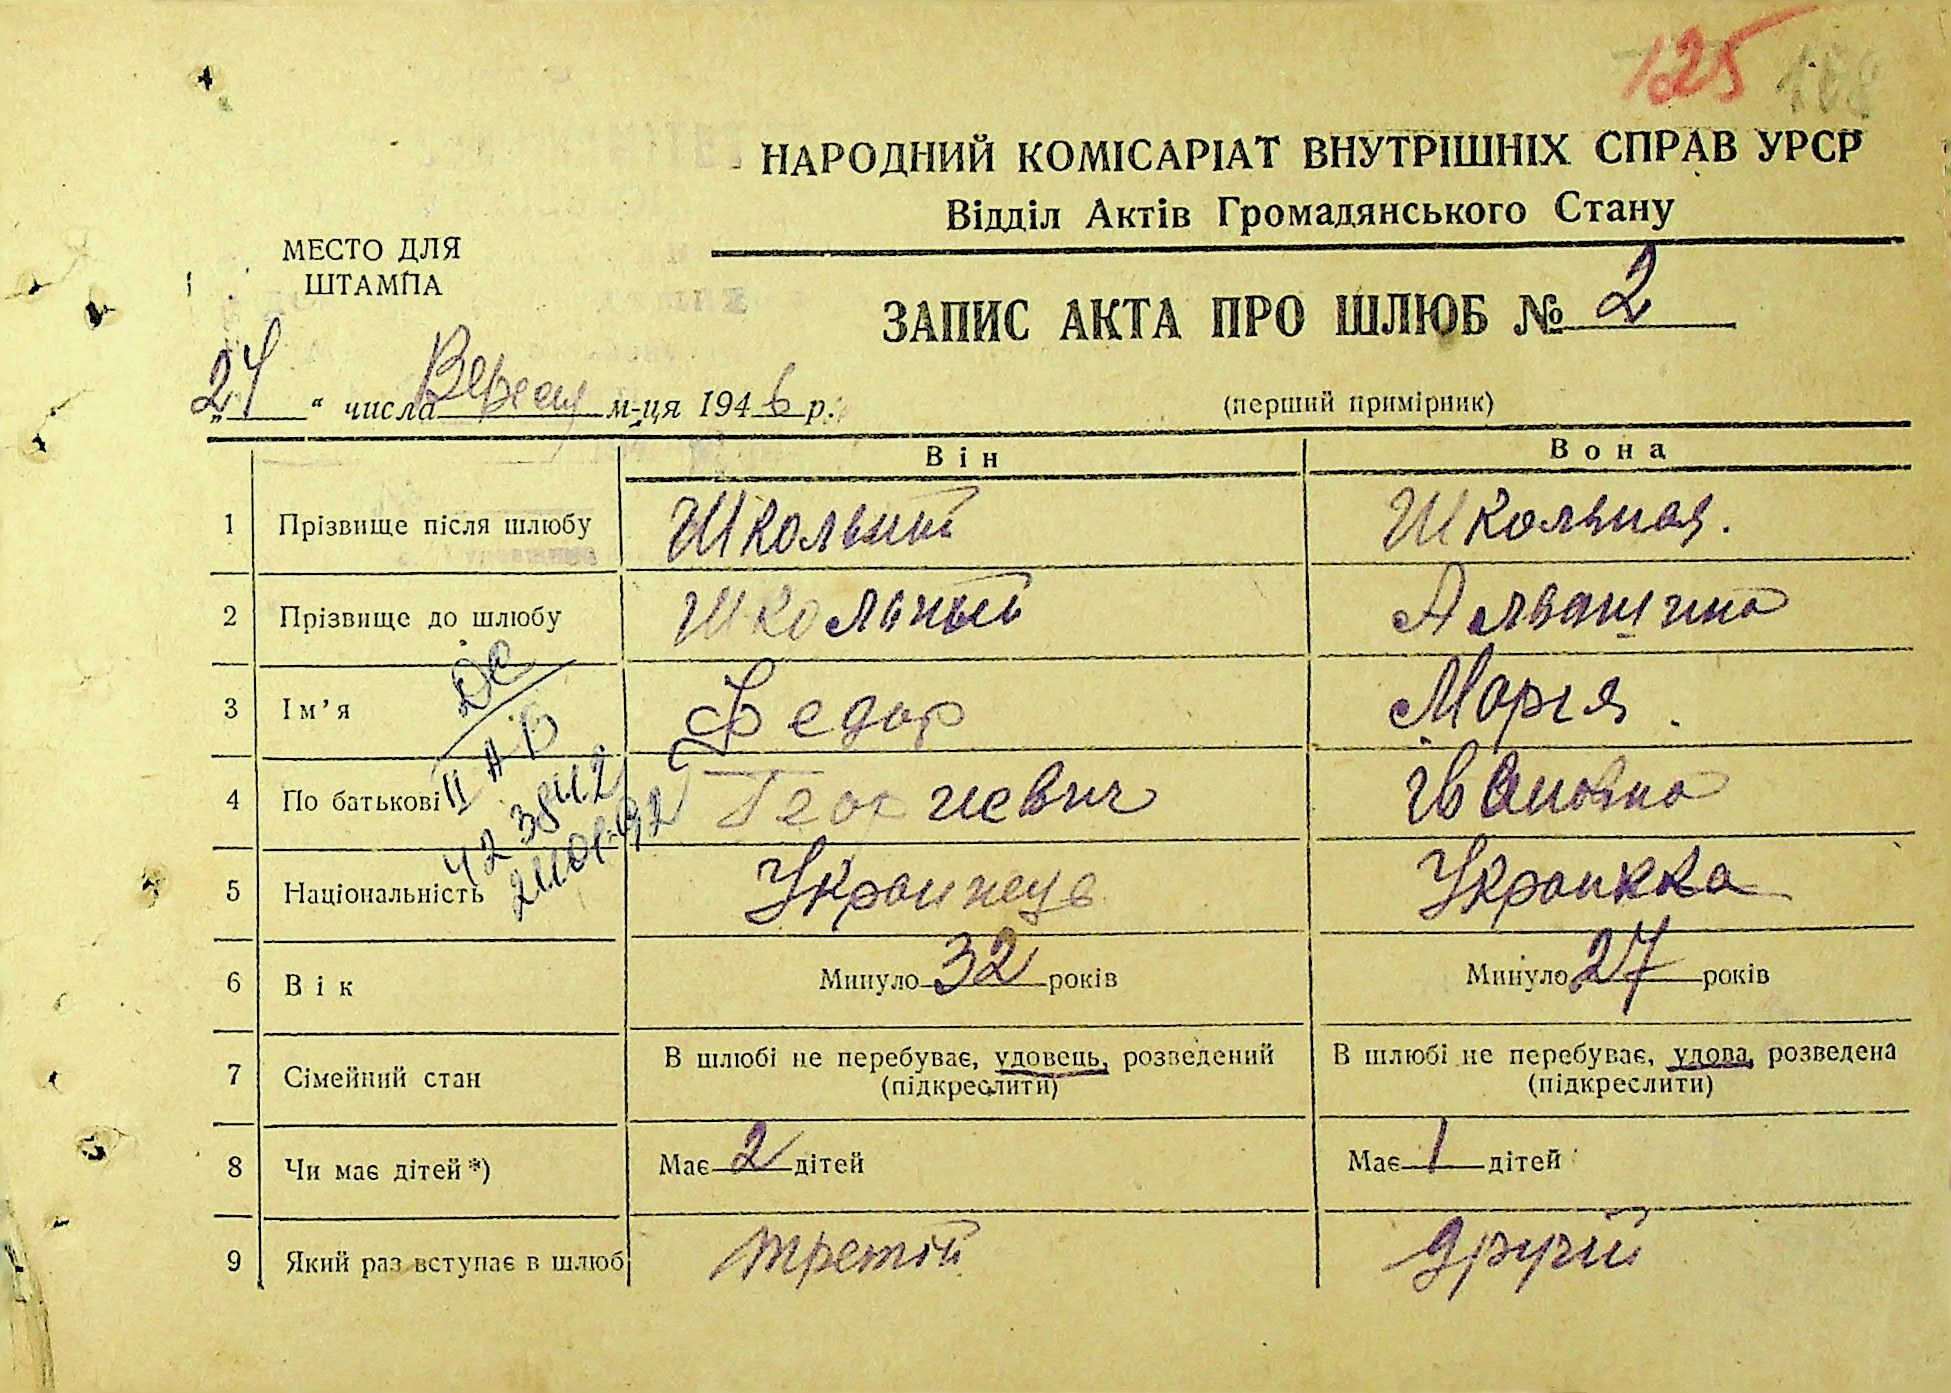 125
НАРОДНИЙ КОМІСАРІАТ ВНУТРІШНІХ СПРАВ УРСР
Відділ Актів Громадянського Стану
МЕСТО ДЛЯ
ШТАМПА
ЗАПИС АКТА ПРО ШЛЮБ № 2
(перший примірник)
„24“ числа Вересня м-ця 1946 р.
Він Вона
1 Прізвище після шлюбу Школьний Школьная.
2 Прізвище до шлюбу Школьный
3 Ім'я Федор Мария.
4 По батькові Георгиевич Івановна
5 Національність Украинець Украинка
6 Вік Минуло 32 років Минуло 27 років
7 Сімейний стан В шлюбі не перебуває, удовець, розведений (підкреслити) В шлюбі не перебуває, удова, розведена (підкреслити)
8 Чи має дітей*) Має 2 дітей Має 1 дітей
9 Який раз вступає в шлюб третій другій